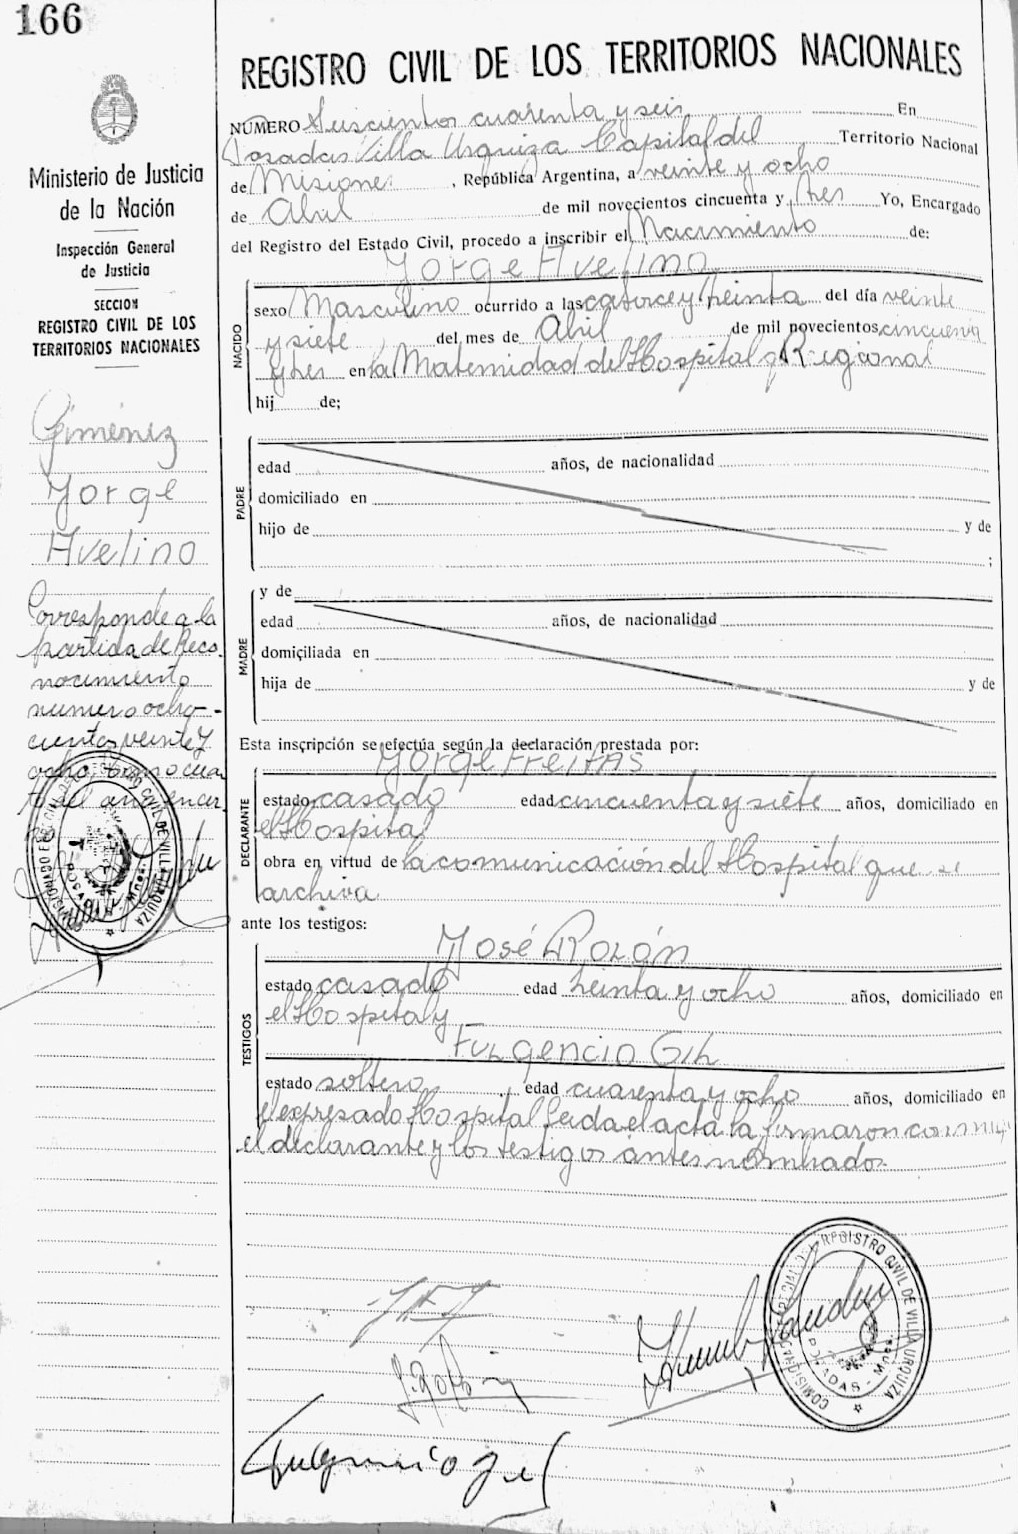 166
Ministerio de Justicia
de la Nación
Inspección General
de Justicia
SECCION
REGISTRO CIVIL DE LOS
TERRITORIOS NACIONALES
Giménez
Jorge
Avelino
Corresponde a la
partida de Reco-
nocimiento
numero ocho-
cientos veinte y
ocho, tomo cuar
to del
REGISTRO CIVIL DE LOS TERRITORIOS NACIONALES
NUMERO Seiscientos cuarenta y seis En
Posadas Villa Urquiza Capital del Territorio Nacional
de Misiones, República Argentina, a veinte y ocho
de Abril de mil novecientos cincuenta y tres Yo, Encargado
del Registro del Estado Civil, procedo a inscribir el Nacimiento de:
Jorge Avelino
NACIDO
sexo Masculino ocurrido a las catorce y treinta del día veinte
y siete del mes de Abril de mil novecientos cincuenta
y tres en la Maternidad del Hospital Regional
hij de;
PADRE
edad años, de nacionalidad
domiciliado en
hijo de y de
;
MADRE
y de
edad años, de nacionalidad
domiciliada en
hija de y de
Esta inscripción se efectúa según la declaración prestada por:
Jorge Freitas
DECLARANTE
estado casado edad cincuenta y siete años, domiciliado en
el Hospital
obra en virtud de la comunicación del Hospital que se
archiva
ante los testigos:
TESTIGOS
José Rolón
estado casado edad treinta y ocho años, domiciliado en
el Hospital y
Fulgencio Gil
estado soltero, edad cuarenta y ocho años, domiciliado en
el expresado Hospital Leida el acta la firmaron conmigo
el declarante y los testigos antes nombrados.
Fulgencio Gil
REGISTRO CIVIL DE VILLA URQUIZA
POSADAS - Mnes.